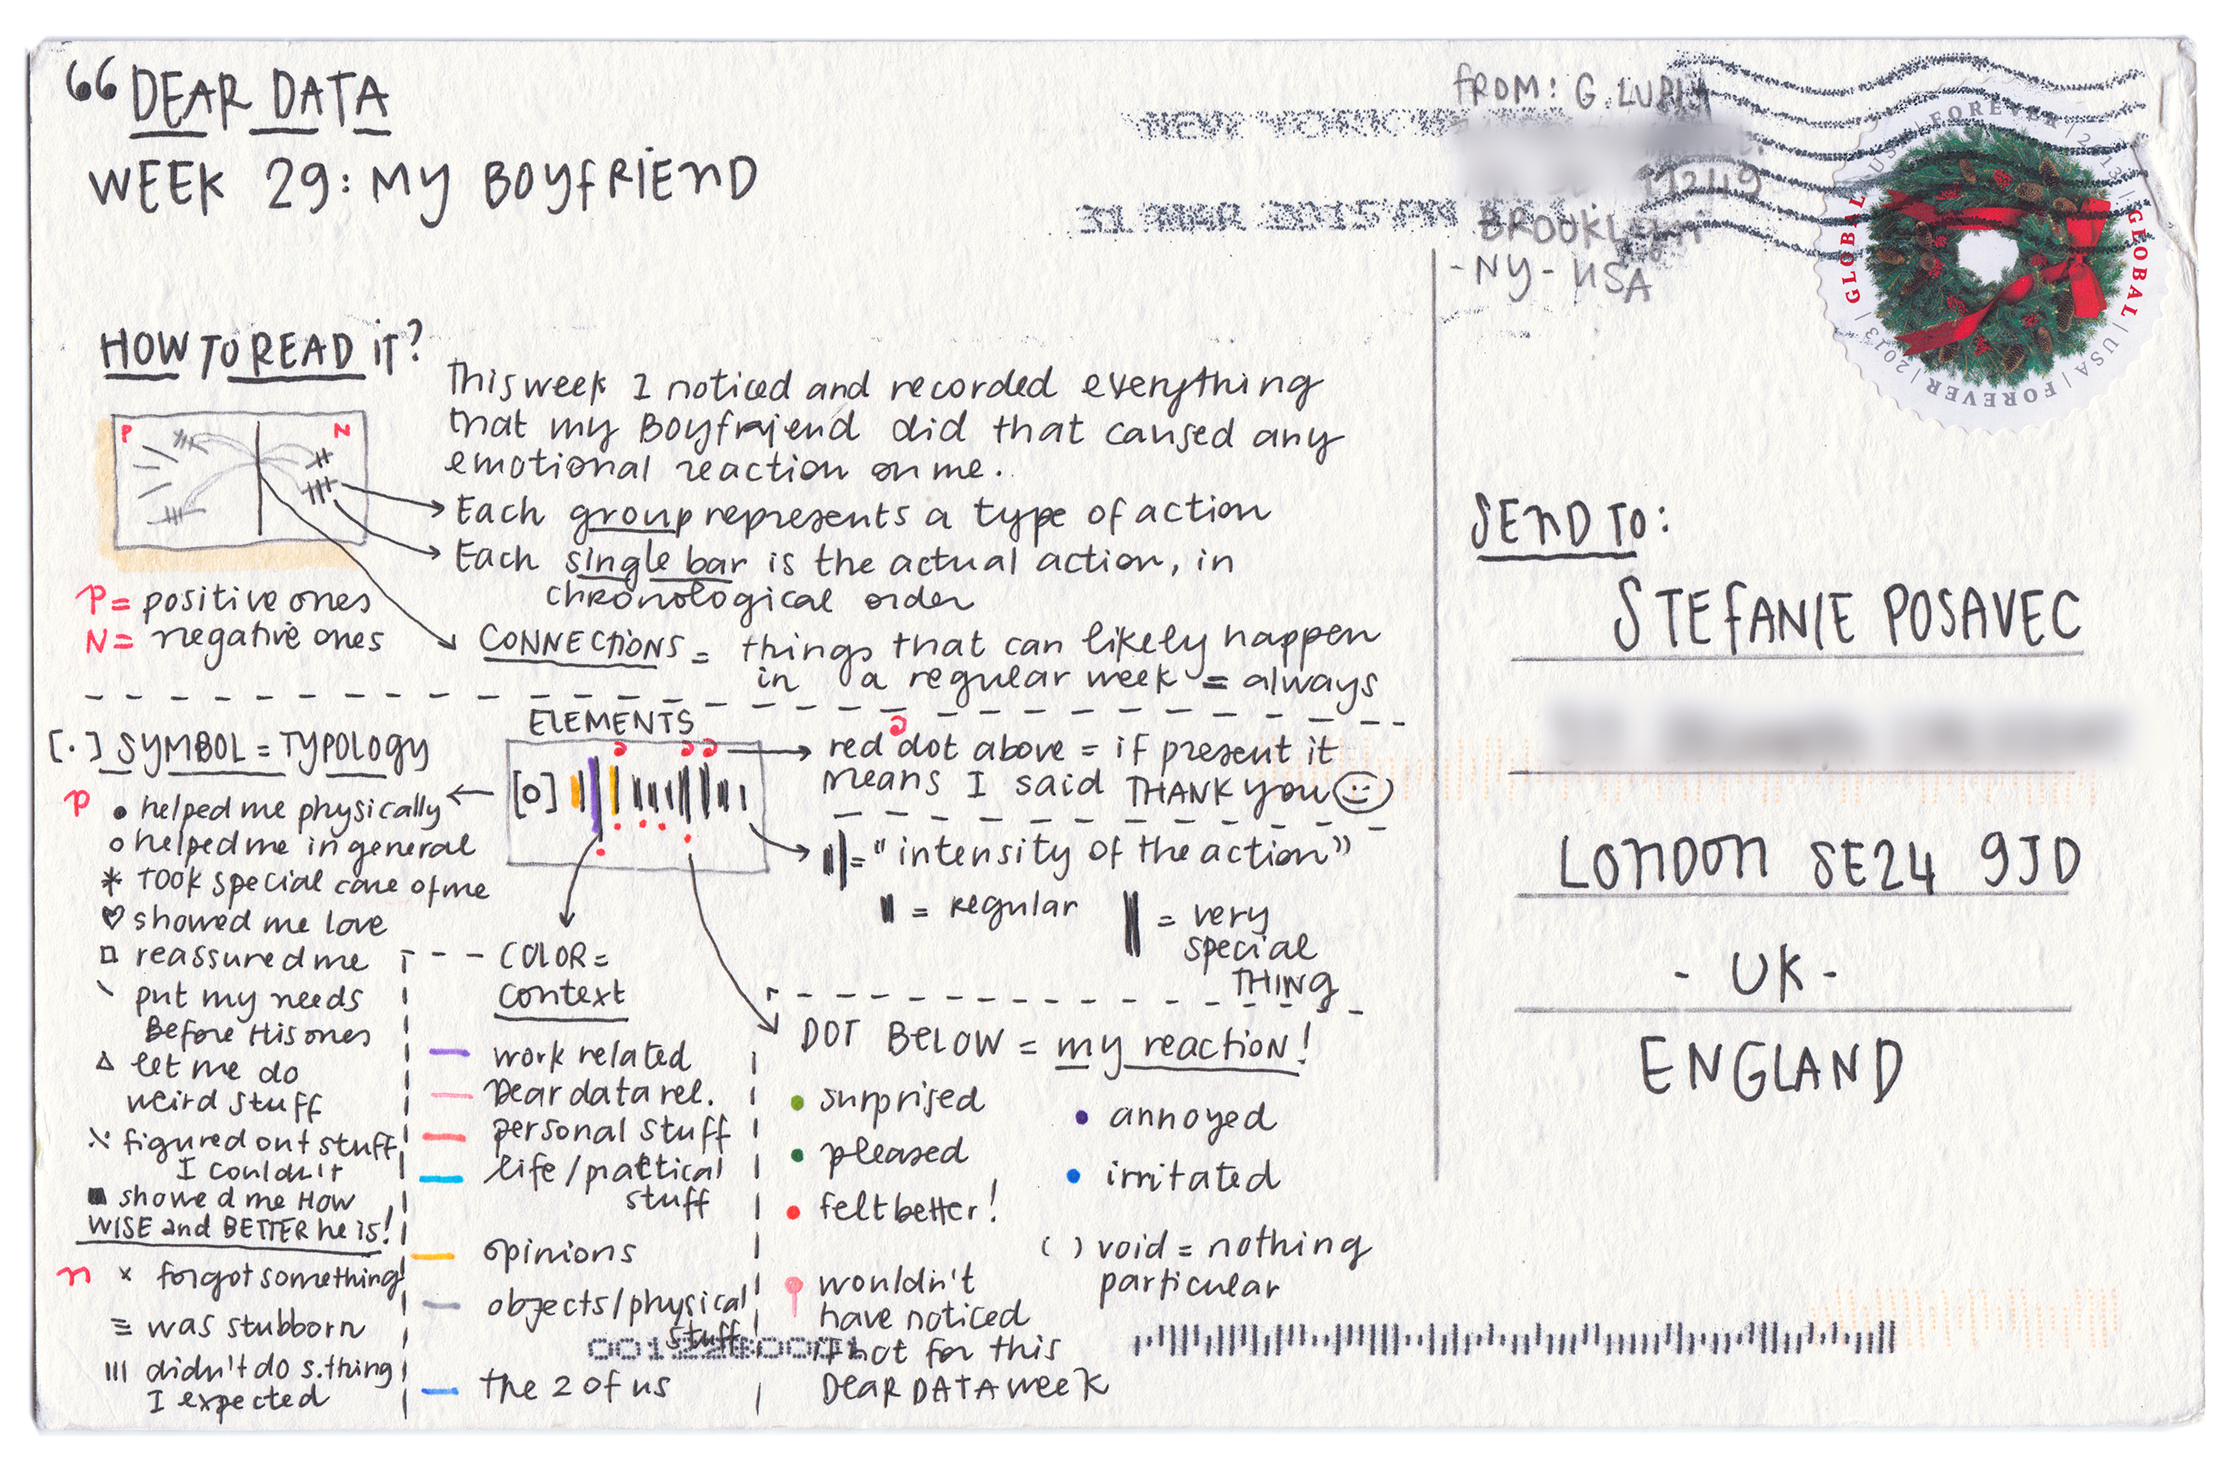 DEAR DATA
WEEK 29: MY BOYFRIEND
FROM: G. LUPI
11249
BROOKLYN
-NY- USA
NEW YORK
31 MAR 2015 PM
GLOBAL | USA | FOREVER | 2013 | GLOBAL | USA | FOREVER | 2013 |
HOW TO READ IT?
P
N
P = positive ones
N = negative ones
This week I noticed and recorded everything
that my Boyfriend did that caused any
emotional reaction on me.
Each group represents a type of action
Each single bar is the actual action, in
chronological order
CONNECTIONS = things that can likely happen
in a regular week = always
[·] SYMBOL = TYPOLOGY
P
● helped me physically
○ helped me in general
* TOOK special care of me
♡ showed me love
□ reassured me
\ put my needs
Before His ones
△ let me do
weird stuff
figured out stuff
I couldn't
■ showed me HOW
WISE and BETTER he is!
n
x forgot something
≡ was stubborn
III didn't do s.thing
I expected
ELEMENTS
[o]
red dot above = if present it
means I said THANK YOU
= "intensity of the action"
= regular
= very
special
THING
COLOR =
context
work related
Dear data rel.
personal stuff
life / practical
stuff
opinions
objects/physical
stuff
the 2 of us
DOT BELOW = my reaction!
surprised
pleased
felt better!
wouldn't
have noticed
if not for this
DEAR DATA week
annoyed
irritated
( ) void = nothing
particular
SEND TO:
STEFANIE POSAVEC
LONDON SE24 9JD
- UK -
ENGLAND